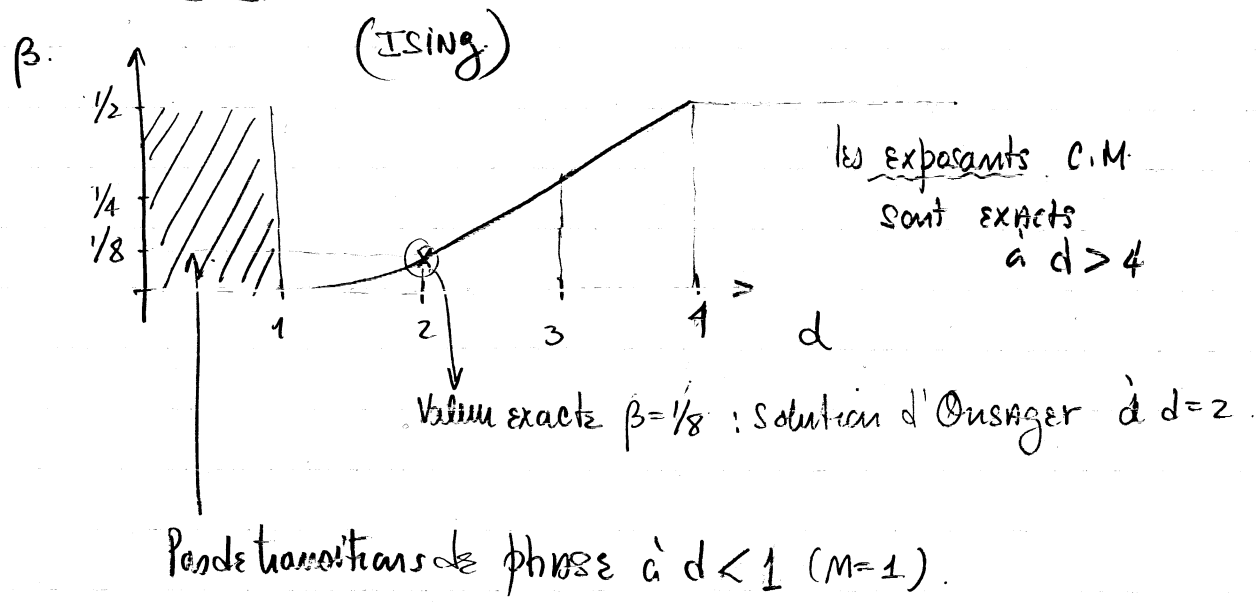 (ISING)
β.
1/2
1/4
1/8
1
2
3
4
d
les exposants C.M.
sont exacts
à d > 4
Valeur exacte β=1/8 : Solution d'Onsager à d=2.
Pas de transitions de phase à d < 1 (M=1).